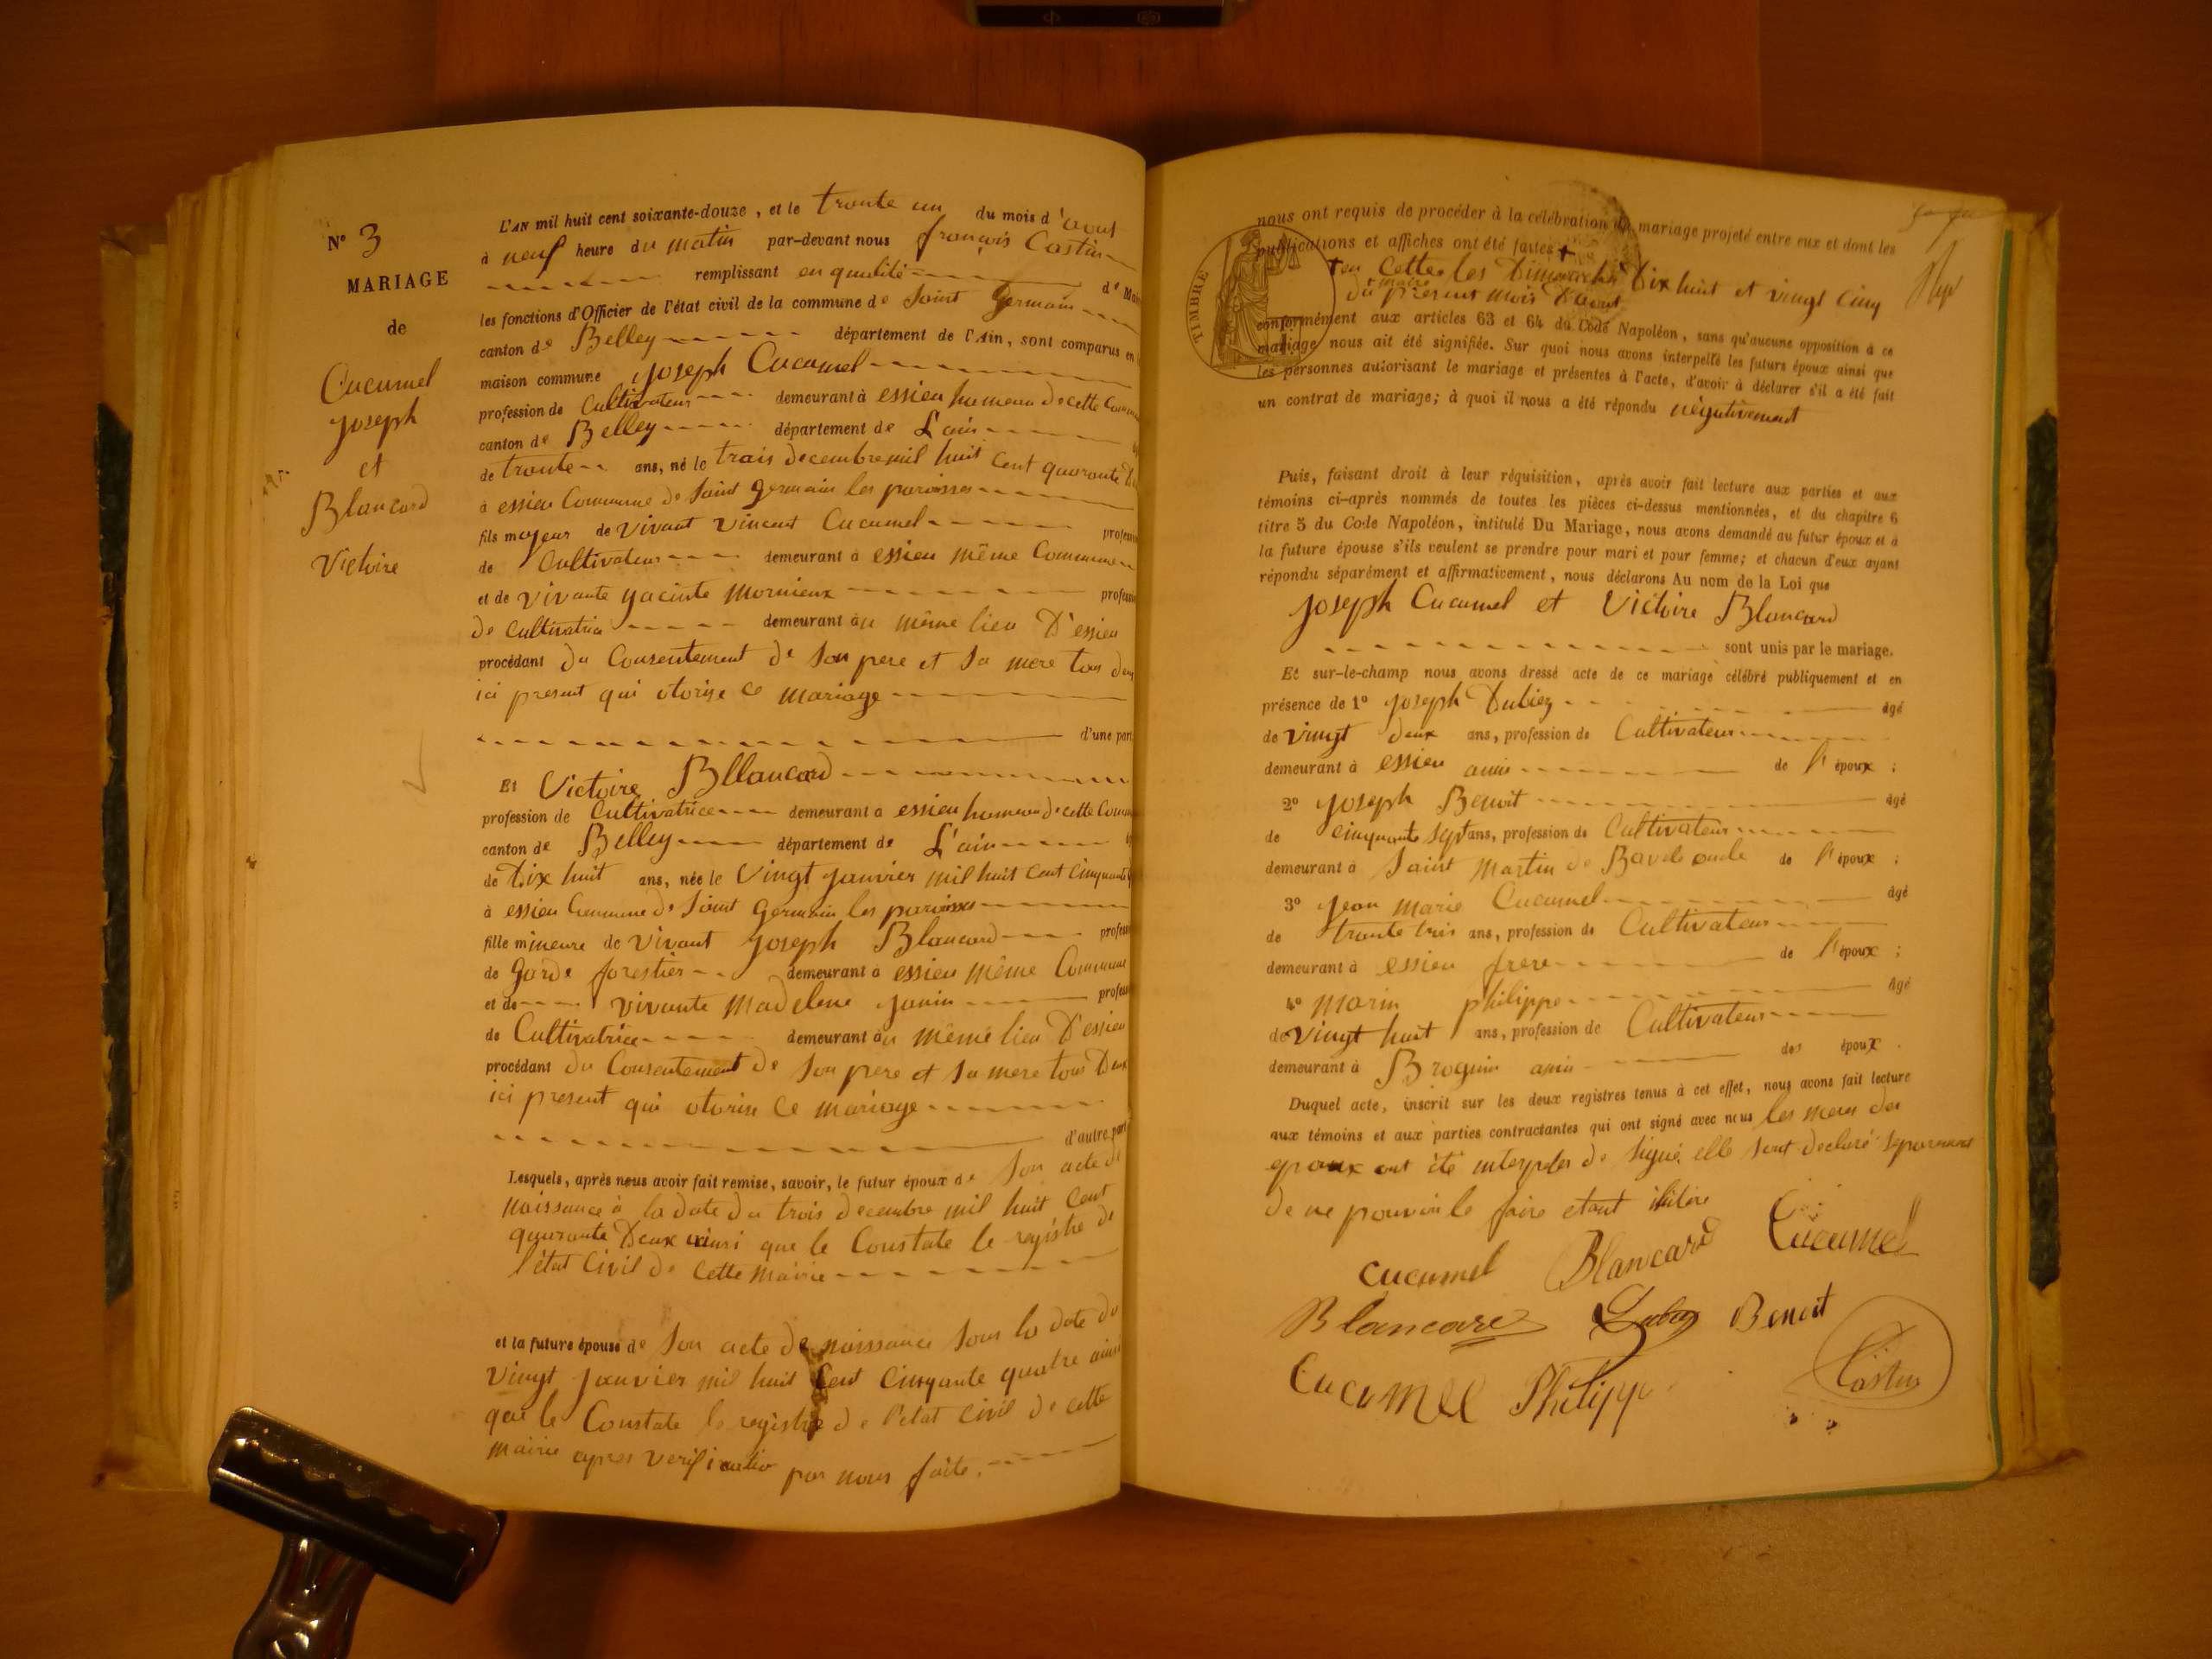 N° 3
MARIAGE
de
Cucumel
Joseph
et
Blancard
Victoire
L'AN mil huit cent soixante-douze, et le trente un du mois d'aout
à neuf heure du matin par-devant nous françois Castin
remplissant en qualité de Mai
les fonctions d'Officier de l'état civil de la commune de Saint Germain
canton de Belley département de l'Ain, sont comparus en
maison commune Joseph Cucumel
profession de Cultivateur demeurant à essieu hameau de cette Com
canton de Belley département de L'ain
de trente ans, né le trois decembre mil huit Cent quarante
à essieu Commune de Saint Germain les paroisses
fils majeur de vivant Vincent Cucumel profess
de Cultivateur demeurant à essieu même Commune
et de vivante yacinte mornieux profess
de cultivatrice demeurant au même lieu D'essieu
procédant du Consentement de son pere et sa mere tous deux
ici present qui otorise ce mariage
d'une part
Et Victoire Bllancard
profession de Cultivatrice demeurant à essieu hameau de cette Comm
canton de Belley département de L'ain
de Dix huit ans, née le Vingt Janvier mil huit cent cinquante
à essieu Commune de Saint Germain les paroisses
fille mineure de vivant Joseph Blancard profess
de Garde forestier demeurant à essieu même Commune
et de vivante Madelene Janin profess
de Cultivatrice demeurant au même lieu D'essieu
procédant du Consentement de son pere et sa mere tous Deux
ici present qui otorise Ce mariage
d'autre part
Lesquels, après nous avoir fait remise, savoir, le futur époux de Son acte de
naissance à la date du trois decembre mil huit Cent
quarante Deux ainsi que le Constate le registre de
l'état Civil de Cette Mairie
et la future épouse de Son acte de naissance Sous la date du
vingt Janvier mil huit Cent Cinquante quatre ainsi
que le Constate le registre de l'etat civil de cette
mairie apres verification par nous faite.
nous ont requis de procéder à la célébration du mariage projeté entre eux et dont les
publications et affiches ont été faites +
+ en Cette mairie les Dimanches Dix huit et vingt Cinq
du present mois D'aout
TIMBRE
conformément aux articles 63 et 64 du Code Napoléon, sans qu'aucune opposition à ce
mariage nous ait été signifiée. Sur quoi nous avons interpellé les futurs époux ainsi que
les personnes autorisant le mariage et présentes à l'acte, d'avoir à déclarer s'il a été fait
un contrat de mariage; à quoi il nous a été répondu négativement
Puis, faisant droit à leur réquisition, après avoir fait lecture aux parties et aux
témoins ci-après nommés de toutes les pièces ci-dessus mentionnées, et du chapitre 6
titre 5 du Code Napoléon, intitulé Du Mariage, nous avons demandé au futur époux et à
la future épouse s'ils veulent se prendre pour mari et pour femme; et chacun d'eux ayant
répondu séparément et affirmativement, nous déclarons Au nom de la Loi que
Joseph Cucumel et Victoire Blancard
sont unis par le mariage.
Et sur-le-champ nous avons dressé acte de ce mariage célébré publiquement et en
présence de 1° Joseph Dubiez âgé
de vingt deux ans, profession de Cultivateur
demeurant à essieu amis de l'époux ;
2° Joseph Benoit âgé
de cinquante sept ans, profession de Cultivateur
demeurant à Saint Martin de Bavel oncle de l'époux ;
3° Jean Marie Cucumel âgé
de trante trois ans, profession de Cultivateur
demeurant à essieu frere de l'époux ;
4° Marin philippe âgé
de Vingt huit ans, profession de Cultivateur
demeurant à Brognin amis des époux.
Duquel acte, inscrit sur les deux registres tenus à cet effet, nous avons fait lecture
aux témoins et aux parties contractantes qui ont signé avec nous les meres des
epoux ont été interpeles de signé, elle sont declaré séparement
de ne pouvoir le faire etant ilitere
Cucumel Blancard Cucumel
Blancard Dubiez Benoit
Cucumel Philippe Castin